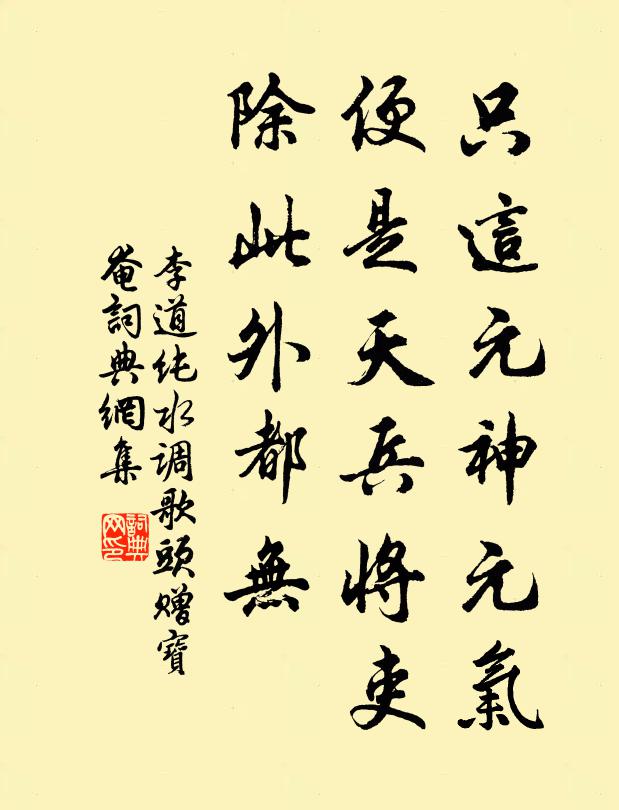 只這元神元氣
便是天兵將吏
除此外都無
李道純水调歌頭赠寶
菴詞典網集
詞典网印